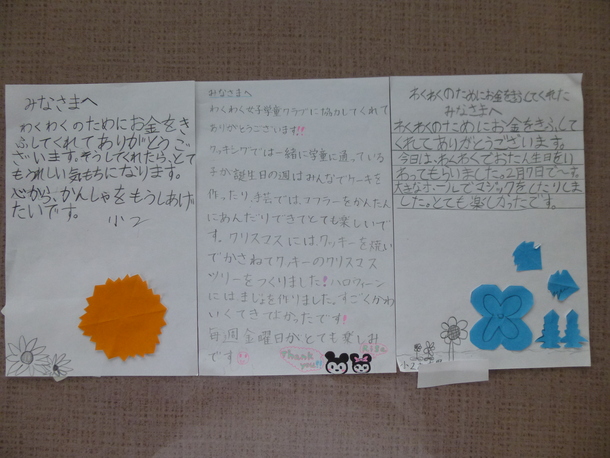 みなさまへ
わくわくのためにお金をき
ふしてくれてありがとうご
ざいます。そうしてくれたら、とて
もうれしい気もちになります。
心から、かんしゃをもうしあげ
たいです。
小2
みなさまへ
わくわく女子学童クラブに協力してくれて
ありがとうございます!!
クッキングでは一緒に学童に通っている
子が誕生日の週はみんなでケーキを
作ったり、手芸ではマフラーをかんたん
にあんだりできてとても楽しいで
す。クリスマスにはクッキーを焼い
てかさねてクッキーのクリスマス
ツリーをつくりました!ハロウィーン
にはましょを作りました。すごくかわ
いくできてよかったです!
毎週金曜日がとても楽しみ
です
Thank
you!!
わくわくのためにお金をきふしてくれた
みなさまへ
わくわくのためにお金をきふして
くれてありがとうございます。
今日は、わくわくでおたん生日をい
わってもらいました。2月7日で〜す。
大きなホールでマジックをしたりしま
した。とても楽しかったです。